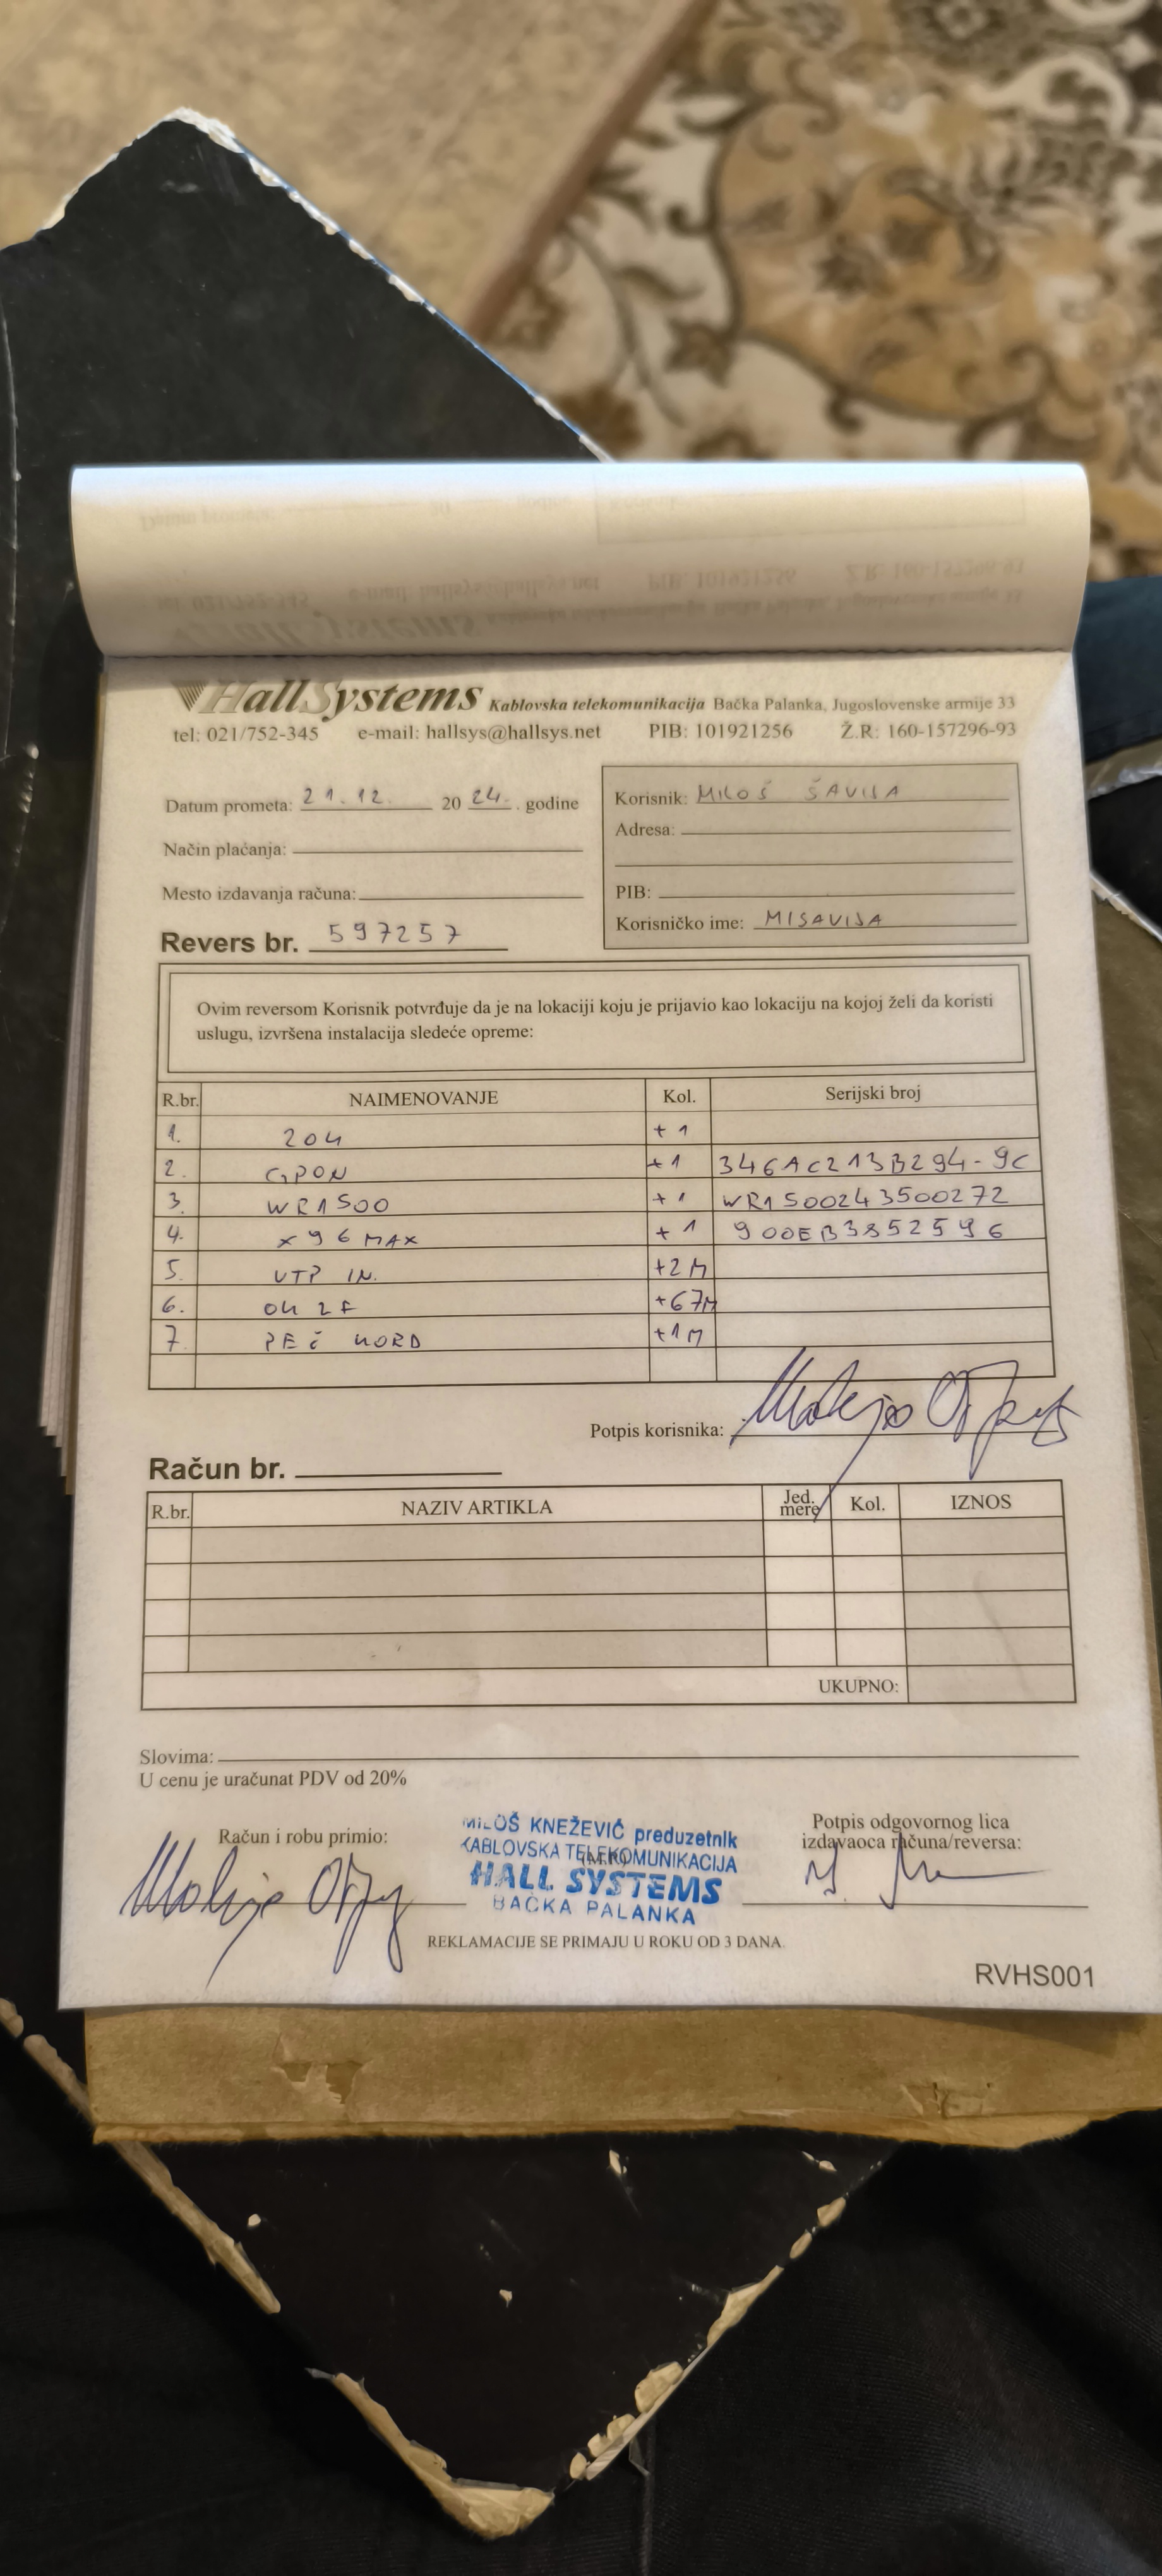 HallSystems Kablovska telekomunikacija Bačka Palanka, Jugoslovenske armije 33
tel: 021/752-345 e-mail: hallsys@hallsys.net PIB: 101921256 Ž.R: 160-157296-93
Datum prometa: 21.12. 20 24. . godine
Način plaćanja:
Mesto izdavanja računa:
Revers br. 597257
Korisnik: MILOŠ ŠAVIJA
Adresa:
PIB:
Korisničko ime: MISAVIJA
Ovim reversom Korisnik potvrđuje da je na lokaciji koju je prijavio kao lokaciju na kojoj želi da koristi
uslugu, izvršena instalacija sledeće opreme:
R.br. NAIMENOVANJE Kol. Serijski broj
1. 204 +1
2. GPON +1 346AC213B294-9C
3. WR1500 +1 WR1500243500272
4. x96MAX +1 900EB3852596
5. UTP IN. +2M
6. OK 2F +67M
7. +1M
Potpis korisnika:
Račun br.
R.br. NAZIV ARTIKLA Jed. mere Kol. IZNOS
UKUPNO:
Slovima:
U cenu je uračunat PDV od 20%
Račun i robu primio:
MILOŠ KNEŽEVIĆ preduzetnik
KABLOVSKA TELEKOMUNIKACIJA
(M.P.)
HALL SYSTEMS
BAČKA PALANKA
Potpis odgovornog lica
izdavaoca računa/reversa:
REKLAMACIJE SE PRIMAJU U ROKU OD 3 DANA.
RVHS001